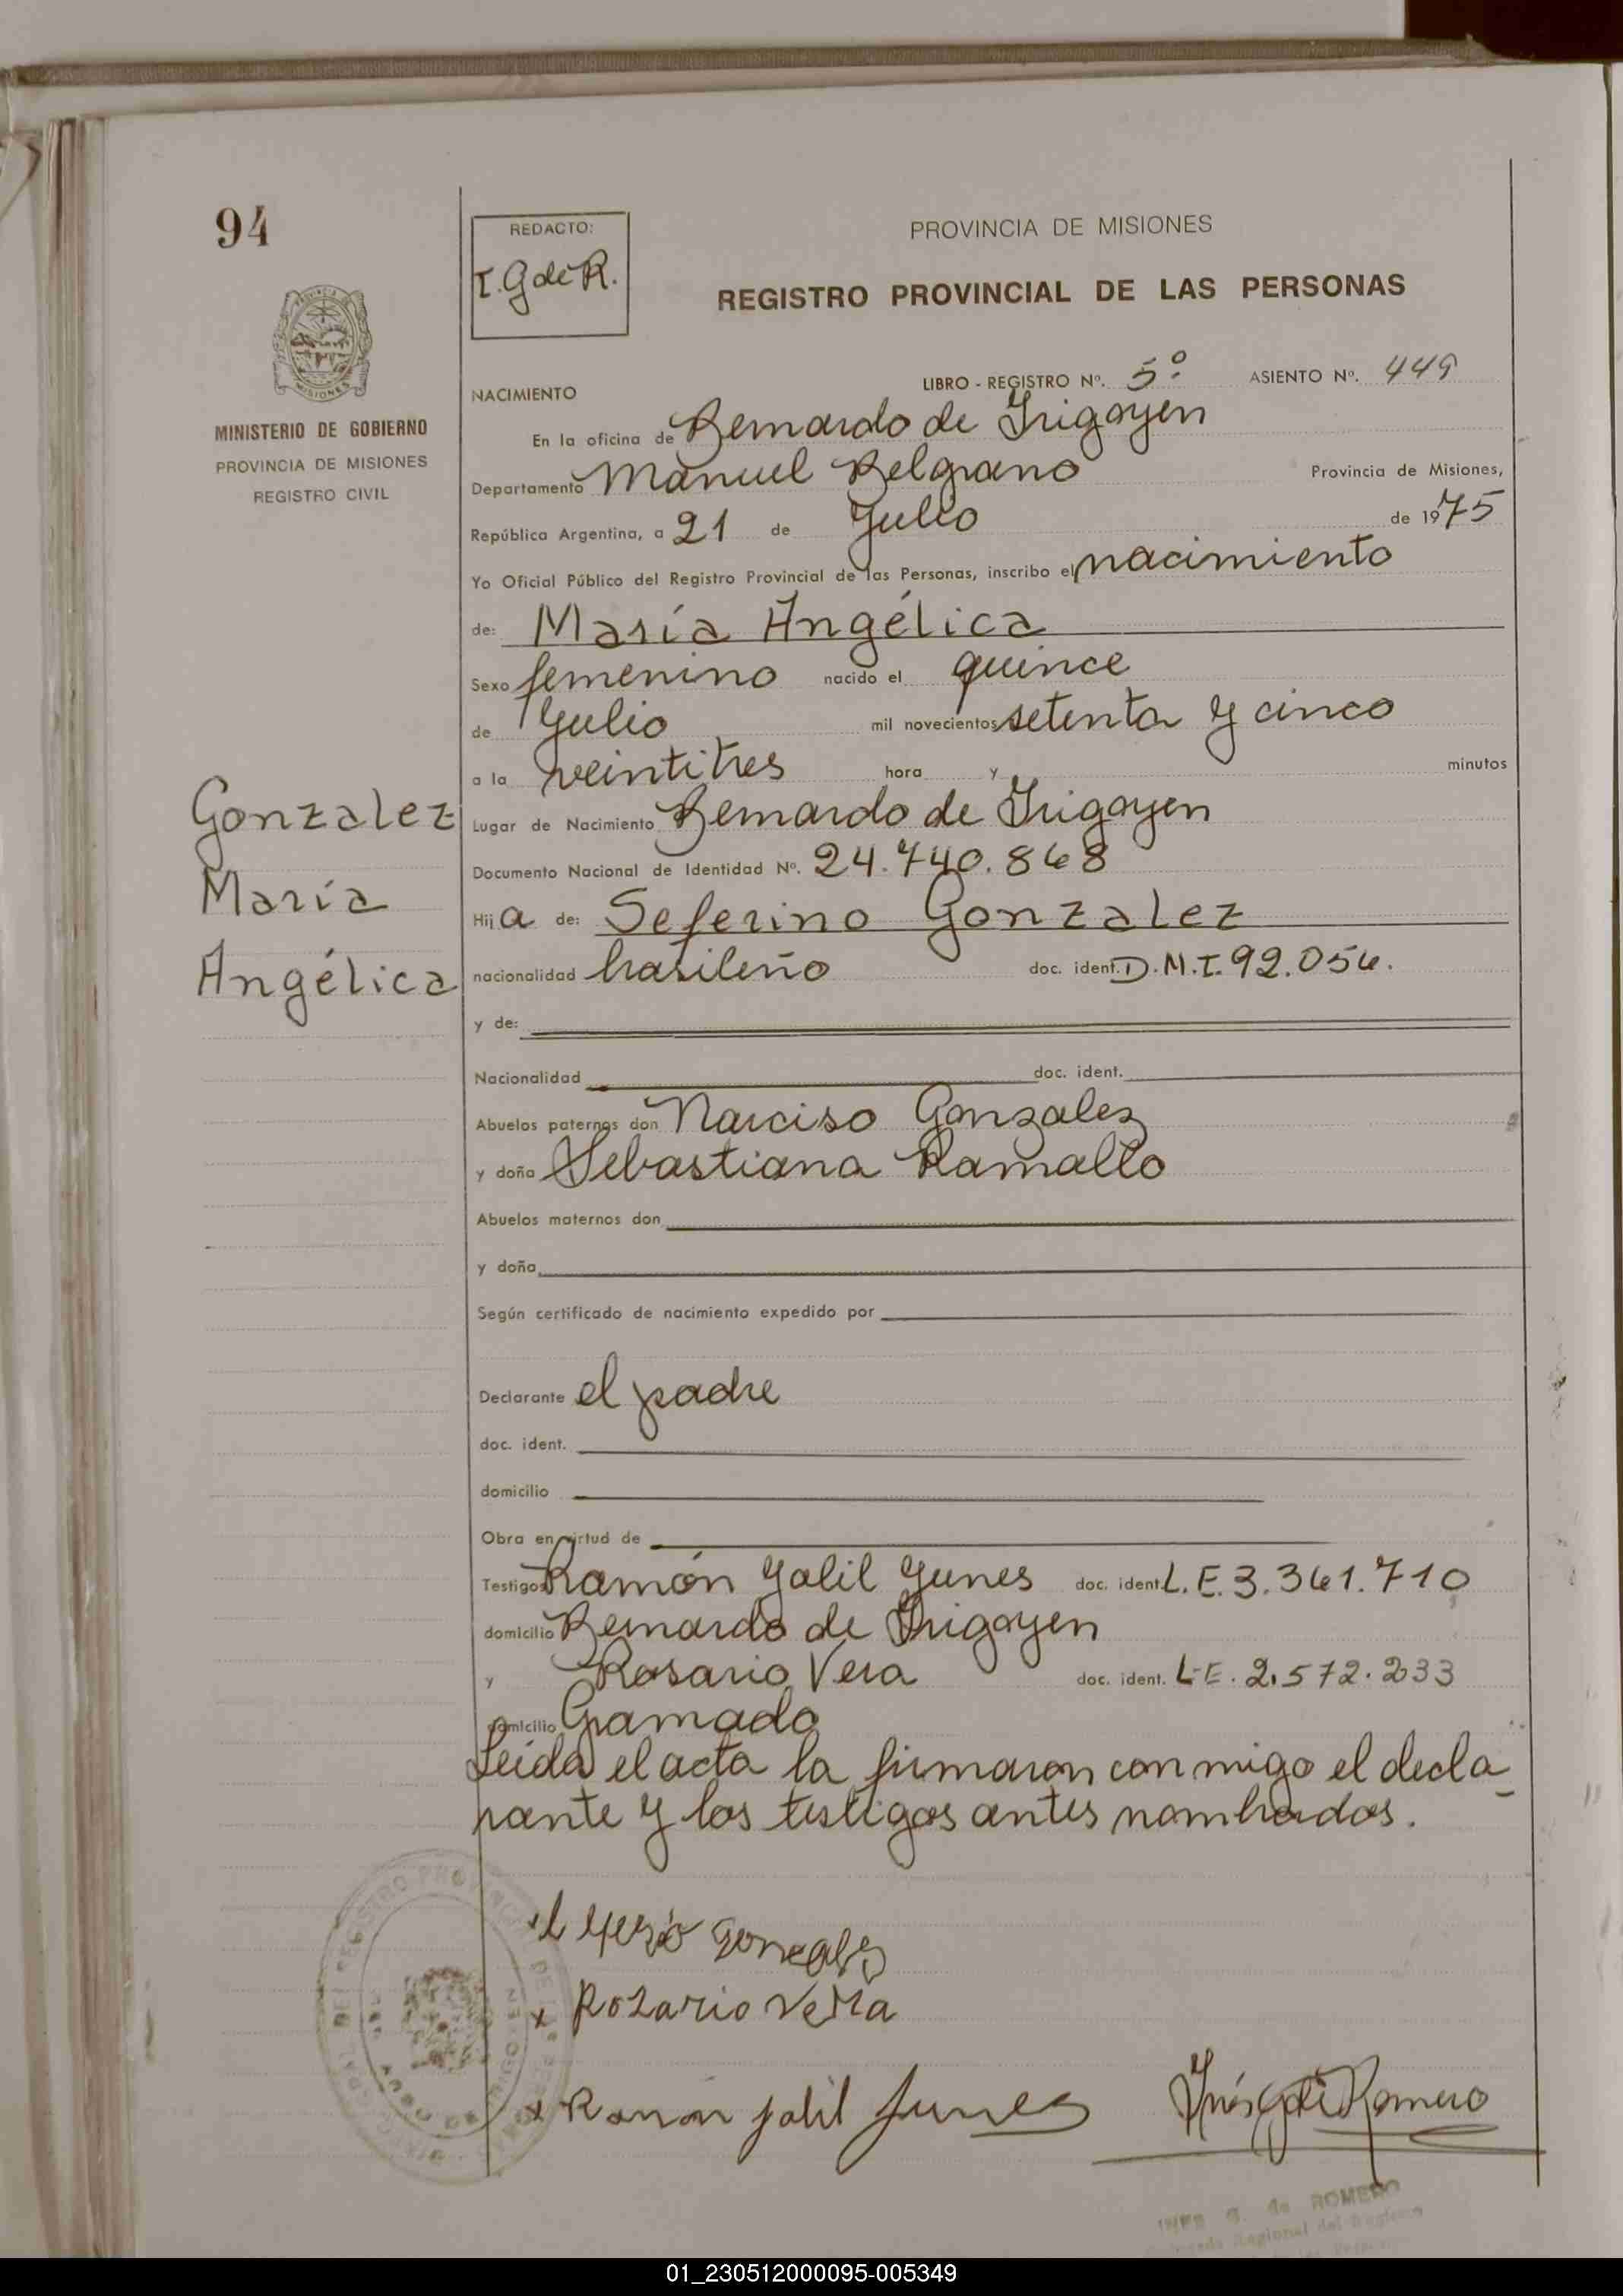 94
REDACTO:
I. G de R.
PROVINCIA DE MISIONES
REGISTRO PROVINCIAL DE LAS PERSONAS
MINISTERIO DE GOBIERNO
PROVINCIA DE MISIONES
REGISTRO CIVIL
NACIMIENTO
LIBRO - REGISTRO Nº. 5º ASIENTO Nº. 449
En la oficina de Bernardo de Irigoyen
Departamento Manuel Belgrano Provincia de Misiones,
República Argentina, a 21 de Julio de 1975
Yo Oficial Público del Registro Provincial de las Personas, inscribo el nacimiento
de: María Angélica
Sexo femenino nacido el quince
de Julio mil novecientos setenta y cinco
a la veintitres hora y minutos
Gonzalez
María
Angélica
Lugar de Nacimiento Bernardo de Irigoyen
Documento Nacional de Identidad Nº. 24.740.868
Hija de: Seferino Gonzalez
nacionalidad brasileño doc. ident. D.M.I. 92.056.
y de:
Nacionalidad doc. ident.
Abuelos paternos don Narciso Gonzalez
y doña Sebastiana Ramallo
Abuelos maternos don
y doña
Según certificado de nacimiento expedido por
Declarante el padre
doc. ident.
domicilio
Obra en virtud de
Testigos Ramón Yalil Yunes doc. ident. L.E. 3.361.710
domicilio Bernardo de Irigoyen
y Rosario Vera doc. ident. L.E. 2.572.233
domicilio Gramado
Leida el acta la firmaron conmigo el decla-
rante y los testigos antes nombrados.
x Rozario Vera
x Ramon Jalil Junes
Inés G de Romero
INES G. de ROMERO
01_230512000095-005349